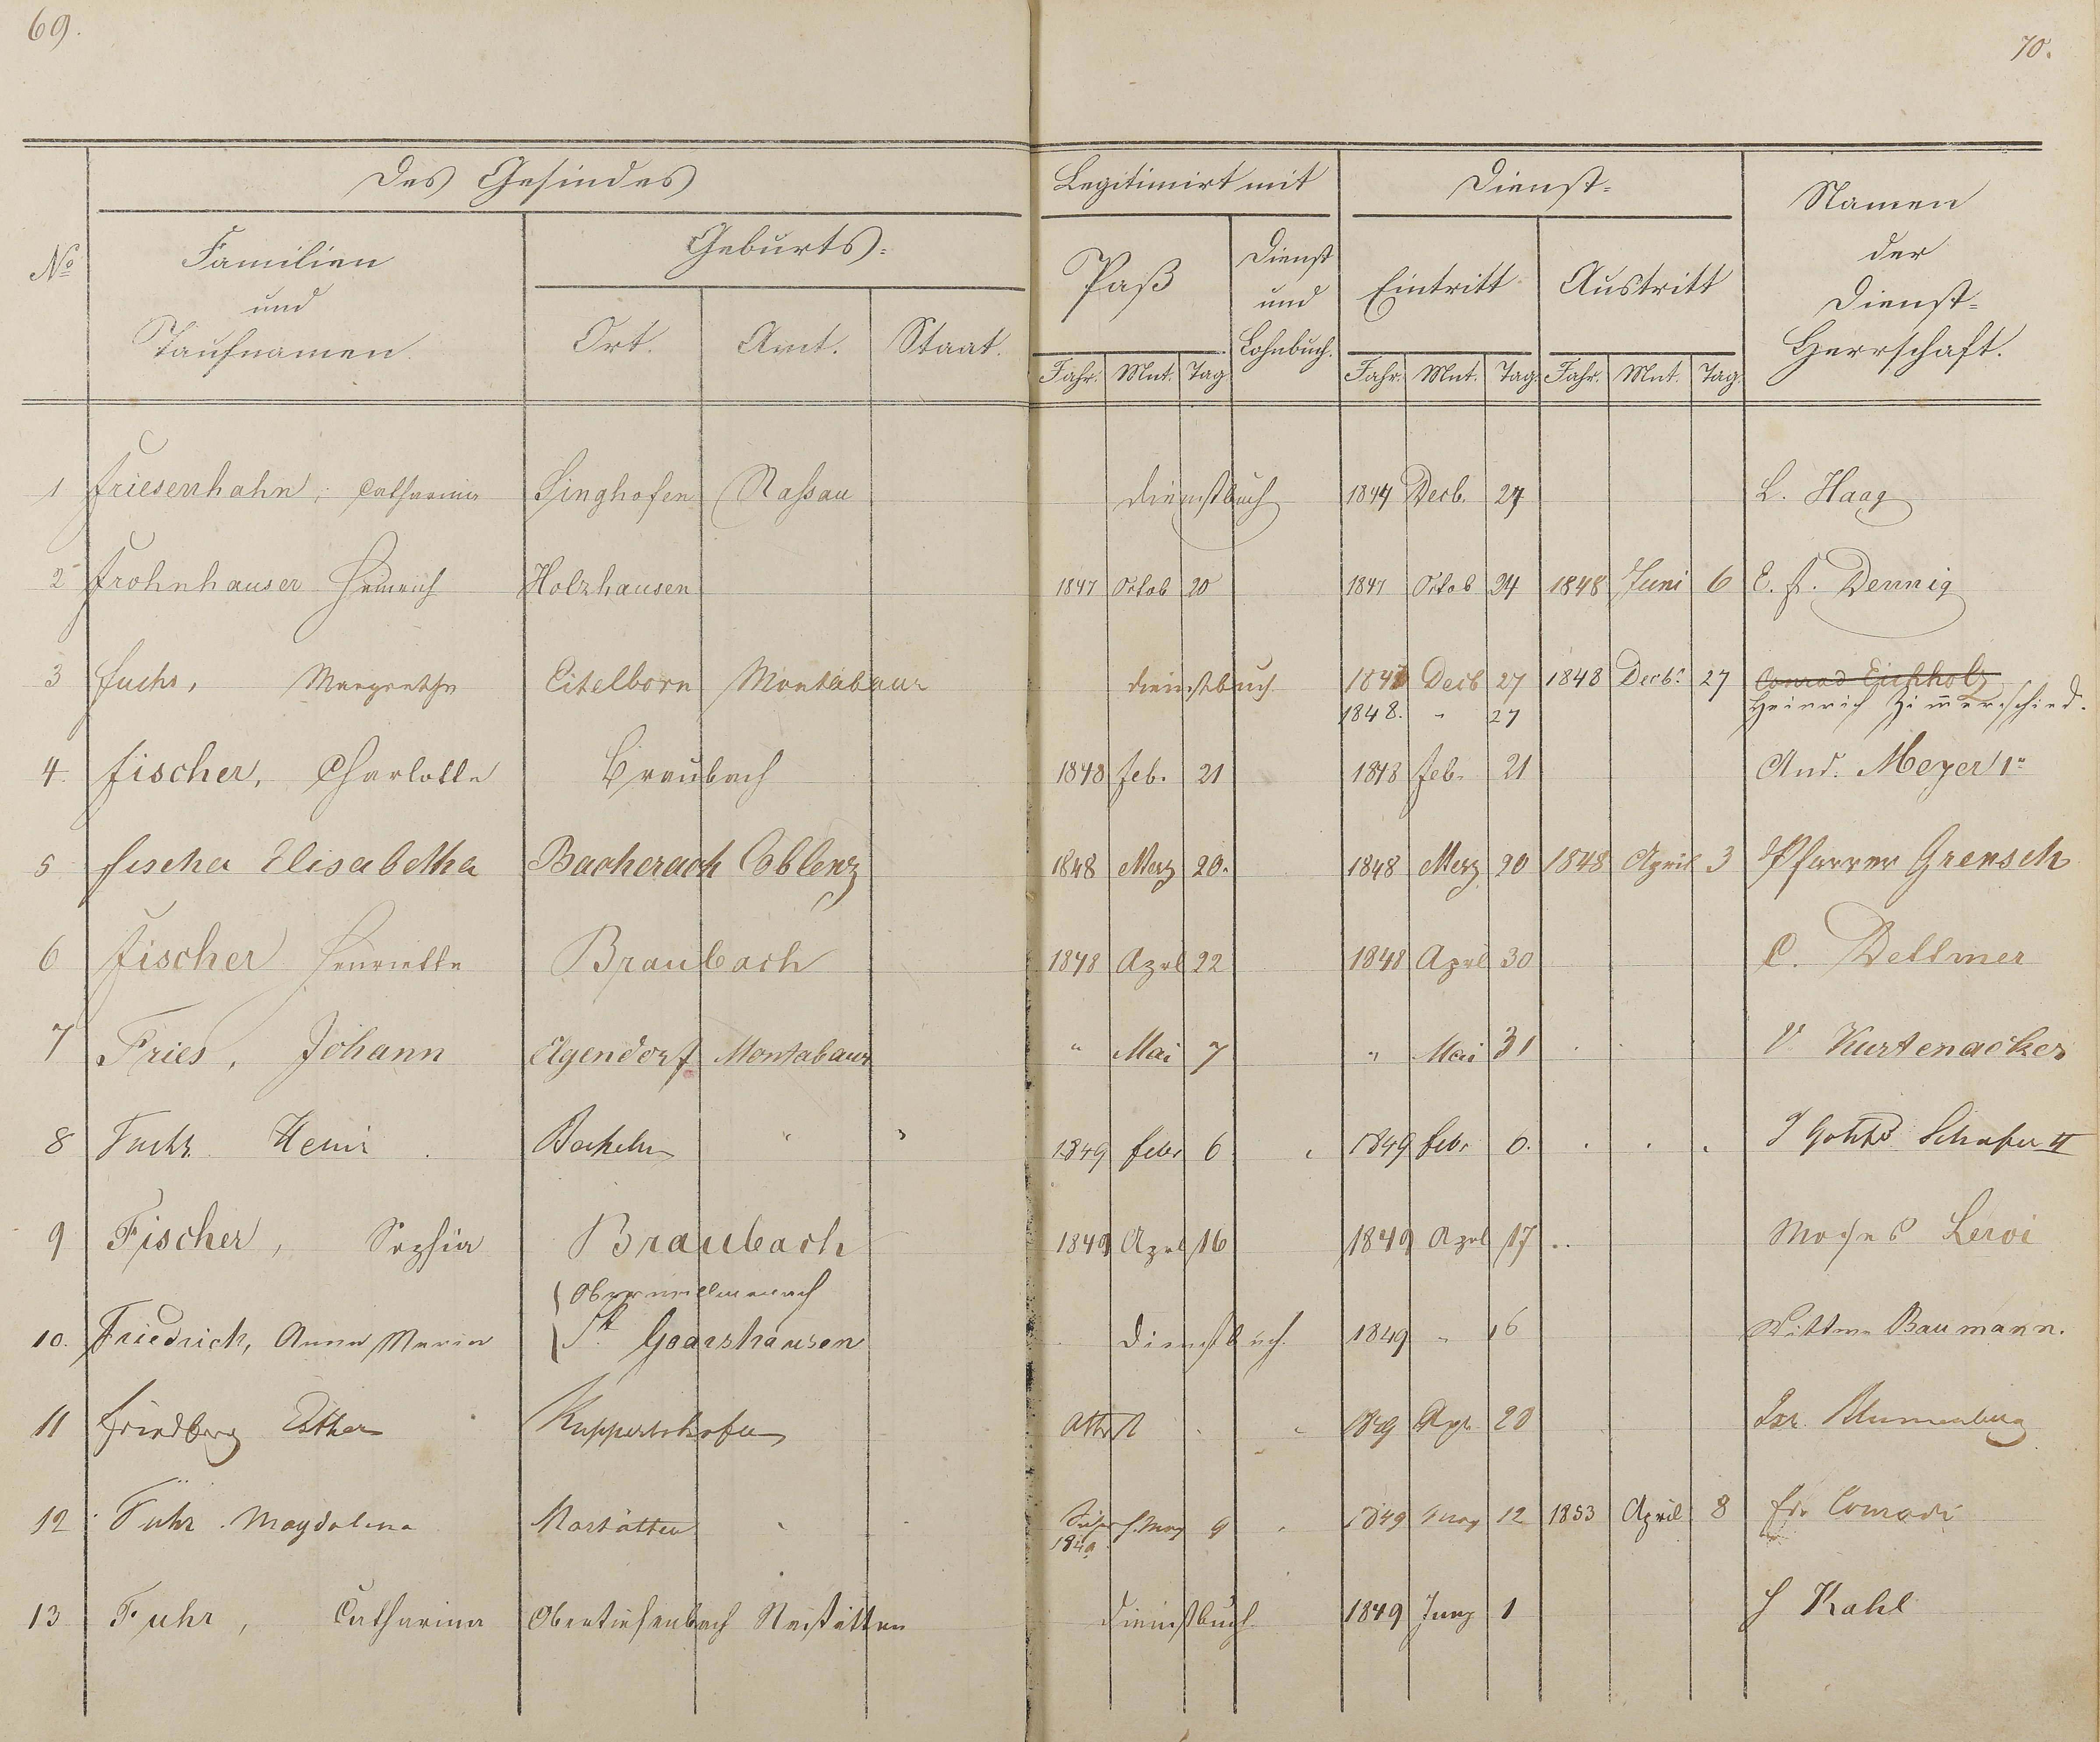 69.
70.
Des Gesindes
Legitimirt mit
Dienst-
Namen
der
Dienst-
Herrschaft.
No
Familien
und
Taufnamen.
Geburts-
Ort. Amt. Staat.
Paß
Dienst
und
Lohnbuch.
Eintritt
Austritt
Jahr. Mnt. Tag
Jahr. Mnt. Tag. Jahr. Mnt. Tag.
1 Friesenhahn, Catharina Singhofen Naßau Dienstbuch 1847 Decb. 27 L. Haag
2 Frohnhauser Heinrich Holzhausen 1847 Octob 20 1847 Octob 24 1848 Juni 6 E. F. Dennig
3 Fuchs, Margrethe Eitelborn Montabaur Dienstbuch. 1847 Decb 27 1848 Decbr 27 Conrad Eichholz
1848. " 27 Heinrich Zimerschied.
4 Fischer, Charlotte Braubach 1848 Feb. 21 1848 Feb. 21 And. Meyer 1r
5 Fischer Elisabetha Bacherach Coblenz 1848 Merz 20. 1848 Merz 20 1848 April 3 Pfarrer Grensch
6 Fischer Henriette Braubach 1848 Aprl 22 1848 Aprl 30 C. Dellmer
7 Fries, Johann Elgendorf Montabaur " Mai 7 " Mai 31 V Kurtenacker
8 Fuchs Bacheln " " 1849 Febr 6 1849 Febr 6. J Gottfr Schafer II
9 Fischer, Sophia Braubach 1849 Aprl 16 1849 Aprl 17 Moses Leroi
Oberwallmenach
10. Friedrich, Anna Maria St. Goarshausen Dienstbuch. 1849 " 16 Wittwe Baumann.
11 Friedberg Esther Ruppertshofen Attest 1849 Apr. 20 Isr. Blumenberg
12 Fuhr Magdalena Nastätten 1849 9 1849 12 1853 April 8 Fr. Conradi
13 Fuhr, Catharina Obertiefenbach Nastätten Dienstbuch. 1849 Juny 1 J Kahl